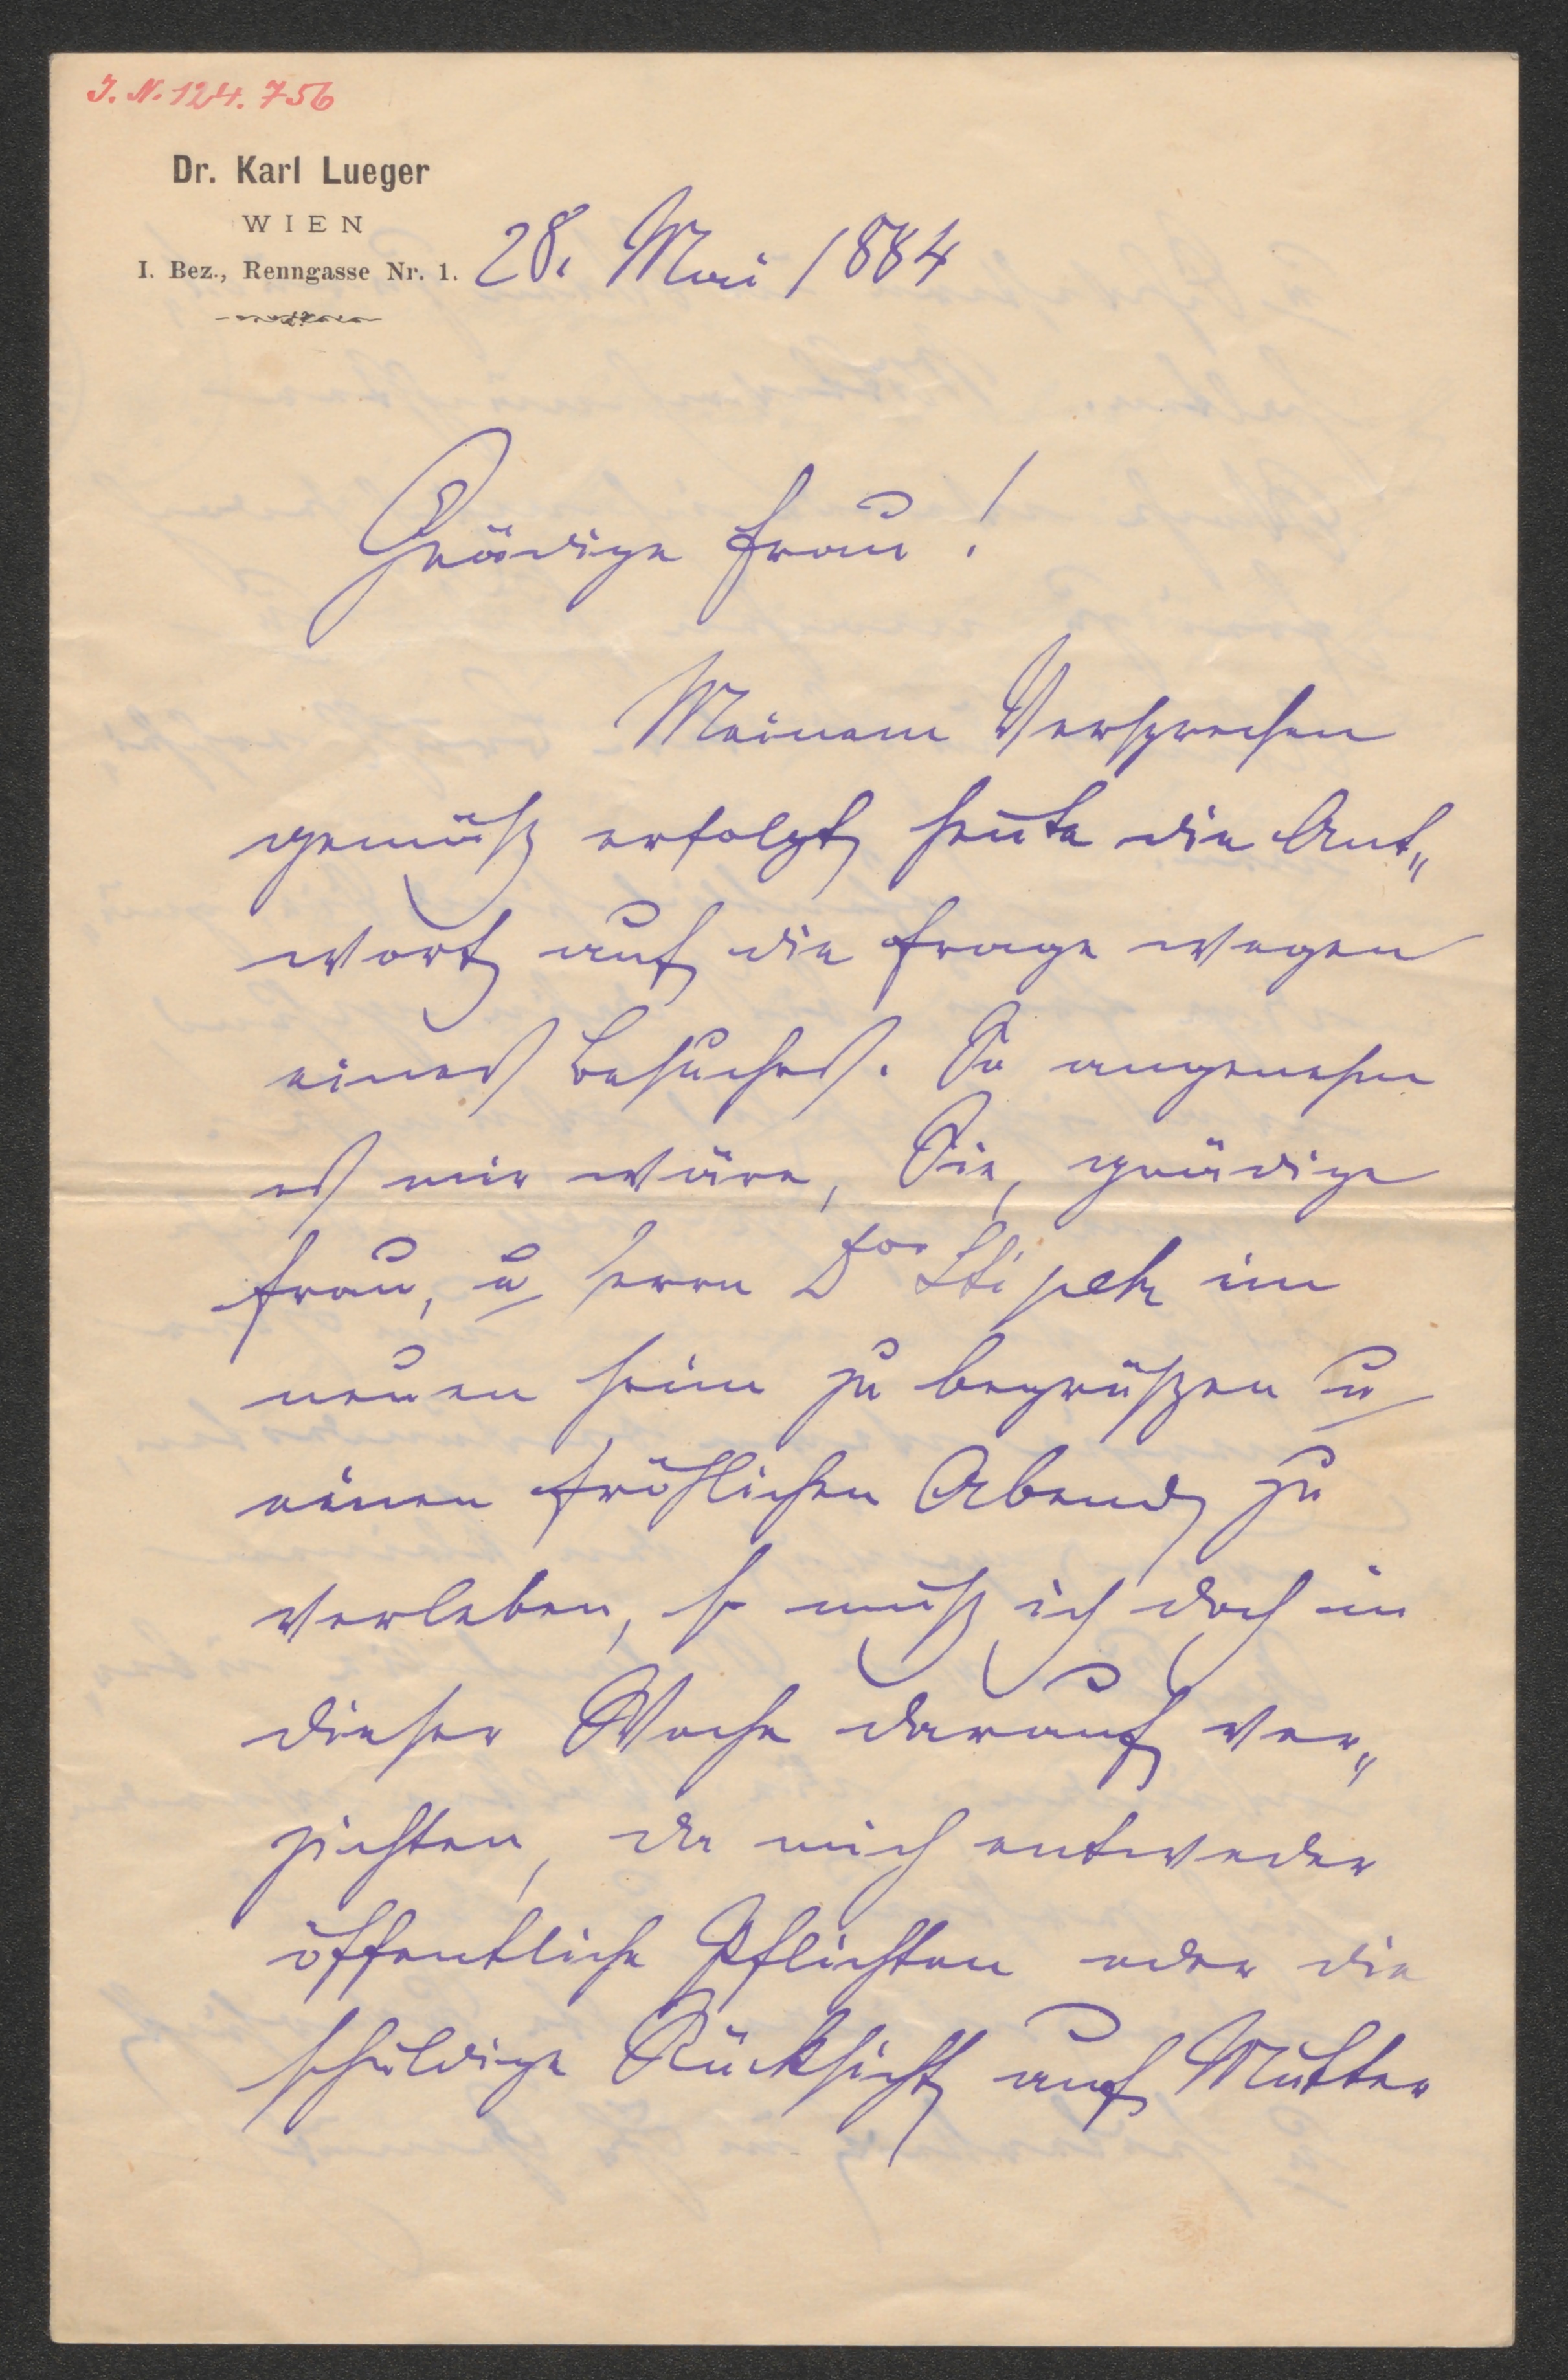 J. N. 124.756
Dr. Karl Lueger
WIEN
I. Bez., Renngasse Nr. 1. 28. Mai 1884
Gnädige Frau!
Meinem Versprechen
gemäß erfolgt heute die Ant„
wort auf die Frage wegen
eines Besuches. So angenehm
es mir wäre, Sie, gnädige
Frau, u Herrn Dor im
neuen Heim zu begrüßen u
einen fröhlichen Abend zu
verleben, so muß ich doch in
dieser Woche darauf ver„
zichten, da mich entweder
öffentliche Pflichten oder die
schuldige Rücksicht auf Mutter